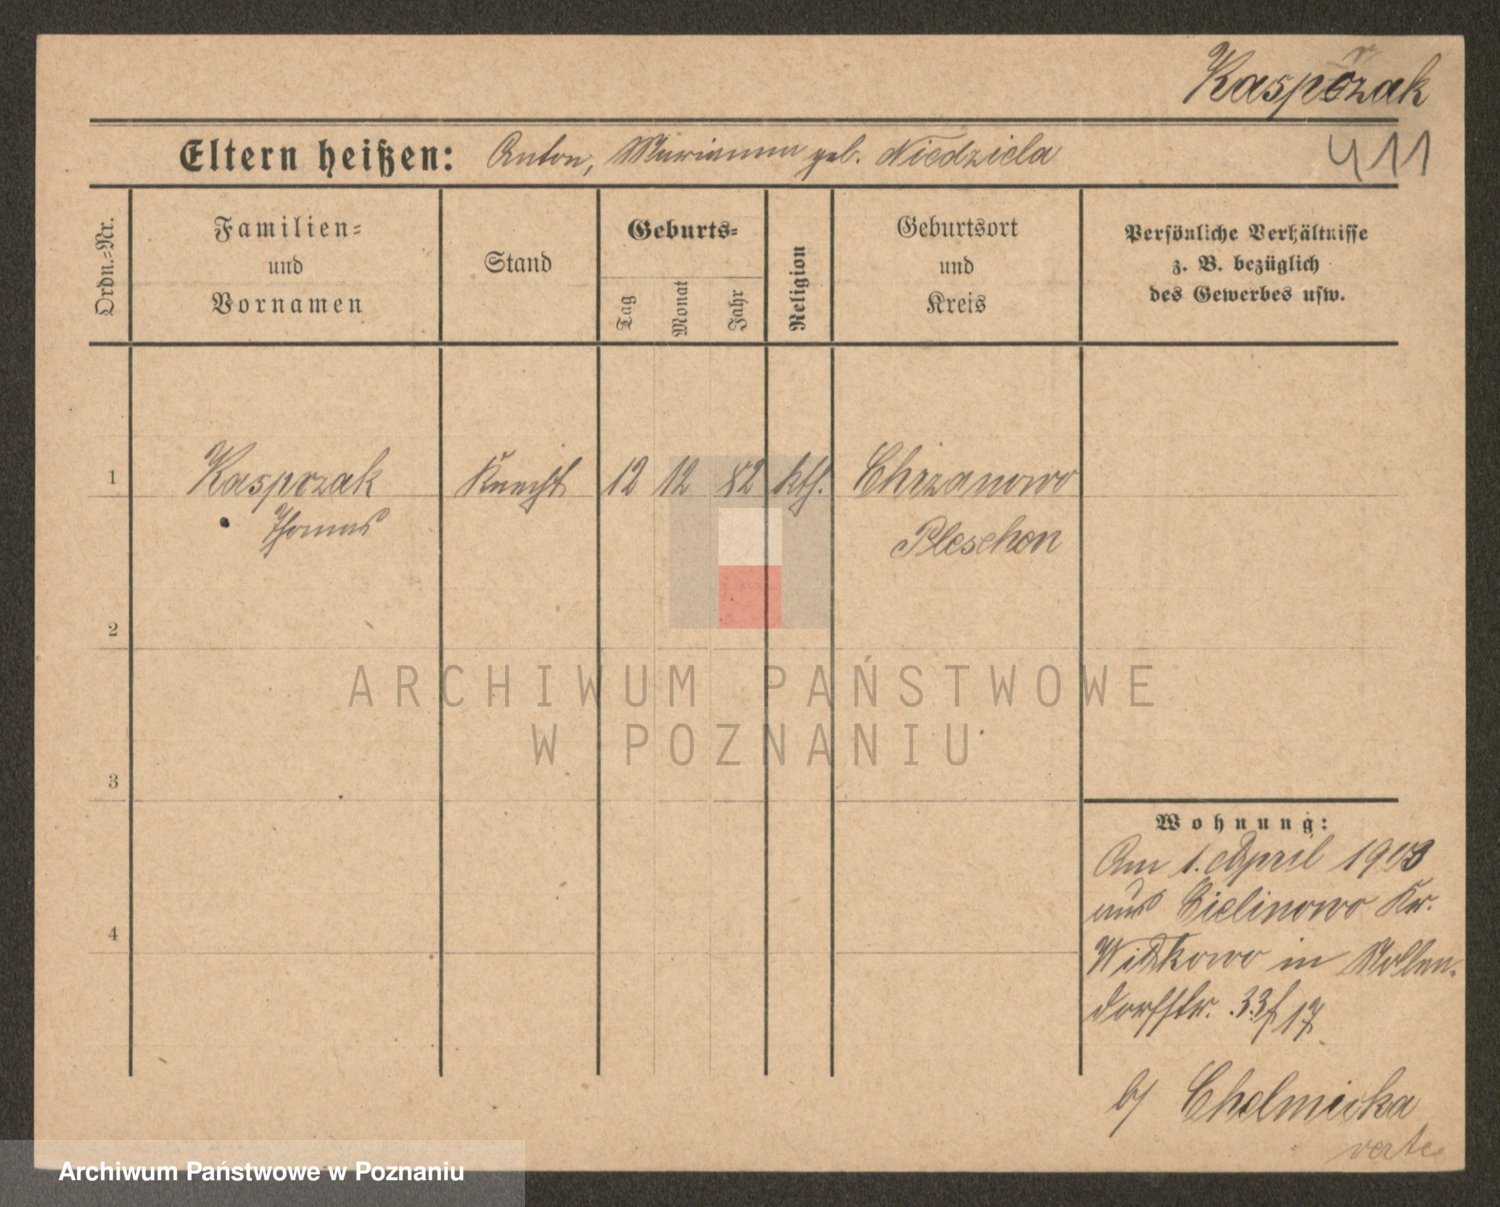 Kasprzak
411
Eltern heißen: Anton, Marianna geb. Niedziela
Ordn.=Nr.
Familien=
und
Vornamen
Stand
Geburts=
Tag
Monat
Jahr
Religion
Geburtsort
und
Kreis
Persönliche Verhältnisse
z. B. bezüglich
des Gewerbes usw.
1 Kasprzak Knecht 12 12 82 kth. Chrzanowo
Thomas Pleschen
2
3
4
Wohnung:
Am 1. April 1903
aus Zielinowo Kr.
Witkowo in Mollen-
dorffstr. 33/17
b/ Chelmicka
verte
ARCHIWUM PAŃSTWOWE
W POZNANIU
Archiwum Państwowe w Poznaniu